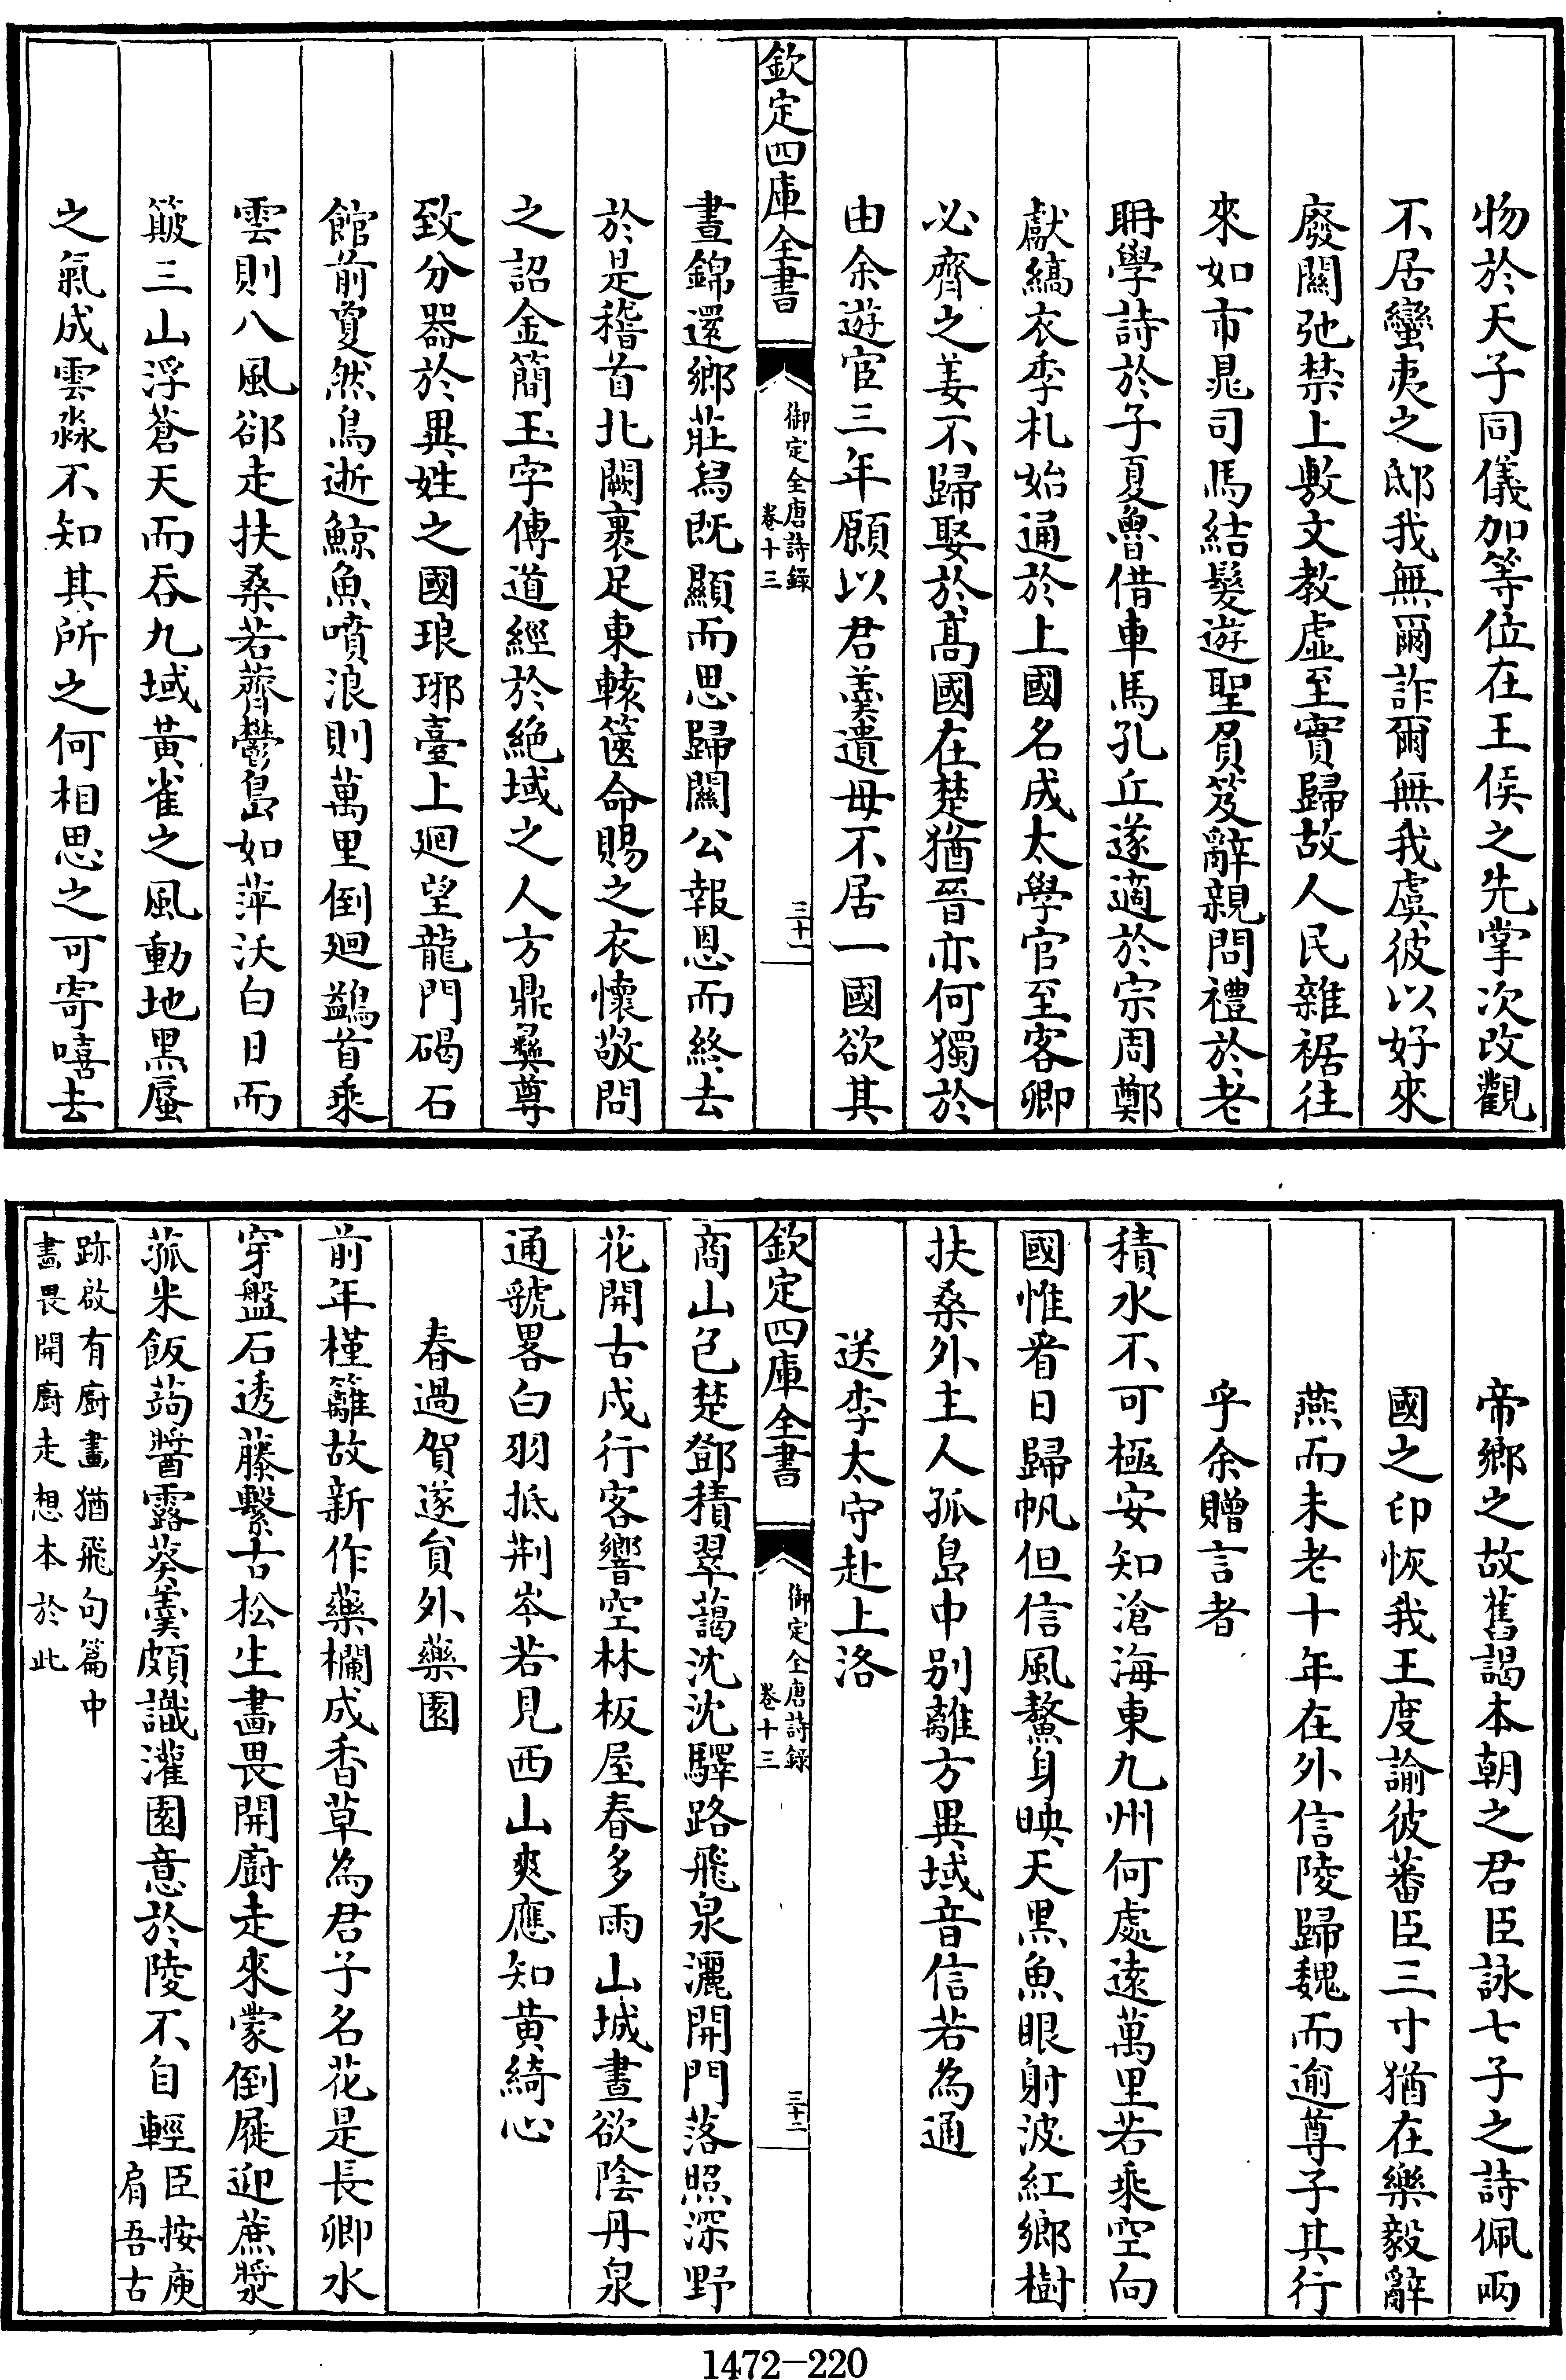 物於天子同儀加等位在王侯之先掌次改觀
不居蠻夷之邸我無爾詐爾無我虞彼以好來
廢關弛禁上敷文教虚至實歸故人民雜裾往
來如市晁司馬結髮遊聖負笈辭親問禮於老
聃學詩於子夏魯借車馬孔丘遂適於宗周鄭
獻縞衣季札始通於上國名成太學官至客卿
必齊之姜不歸娶於髙國在楚猶晉亦何獨於
由余遊宦三年願以君羮遺母不居一國欲其
欽定四庫全書
御定全唐詩錄
卷十三
三十一
晝錦還鄉莊舄既顯而思歸關公報恩而終去
於是稽首北闕裹足東轅篋命賜之衣懷敬問
之詔金簡玉字傳道經於絶域之人方鼎彞尊
致分器於異姓之國琅琊臺上廻望龍門碣石
館前敻然鳥逝鯨魚噴浪則萬里倒廻鷁首乘
雲則八風郤走扶桑若薺鬱島如萍沃白日而
簸三山浮蒼天而吞九域黃雀之風動地黑蜃
之氣成雲淼不知其所之何相思之可寄嘻去
帝鄉之故舊謁本朝之君臣詠七子之詩佩兩
國之印恢我王度諭彼蕃臣三寸猶在樂毅辭
燕而未老十年在外信陵歸魏而逾尊子其行
乎余贈言者
積水不可極安知滄海東九州何處遠萬里若乘空向
國惟㸔日歸帆但信風鰲身映天黒魚眼射波紅鄉樹
扶桑外主人孤島中别離方異域音信若為通
送李太守赴上洛
欽定四庫全書
御定全唐詩錄
卷十三
三十二
商山包楚鄧積翠藹沈沈驛路飛泉灑開門落照深野
花開古戍行客響空林板屋春多雨山城晝欲陰丹泉
通虢畧白羽抵荆岑若見西山爽應知黄綺心
春過賀遂貟外藥園
前年槿籬故新作藥欄成香草為君子名花是長卿水
穿盤石透藤繫古松生畵畏開廚走來蒙倒屣迎蔗漿
菰米飯蒟醬露葵羮頗識灌園意於陵不自輕臣按庾肩吾古
跡啟有廚畵猶飛句篇中
畵畏開廚走想本於此
1472-220